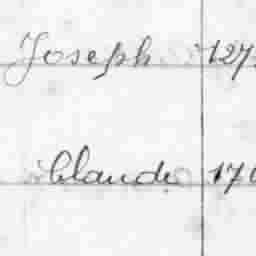 Joseph 127
Claude 170